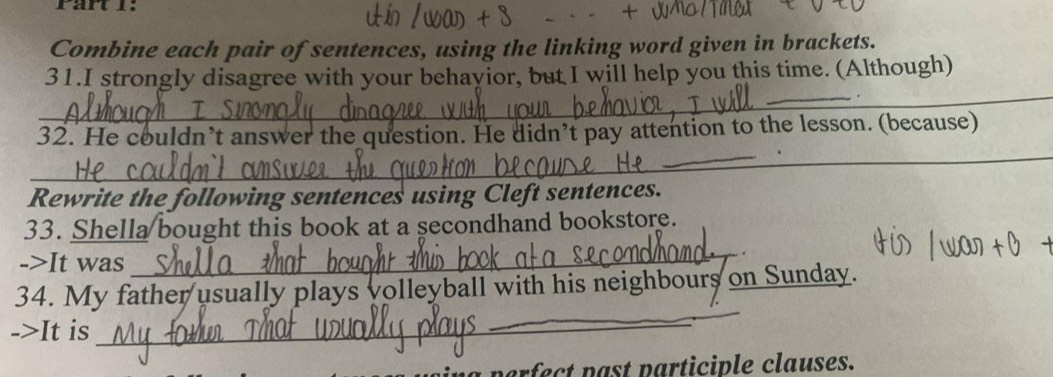 Part 1:
it is /was + S - - - + who/that
Combine each pair of sentences, using the linking word given in brackets.
31.I strongly disagree with your behavior, but I will help you this time. (Although)
Although I strongly disagree with your behavior, I will ______.
32. He couldn't answer the question. He didn't pay attention to the lesson. (because)
He couldn't answer the question because He ______.
Rewrite the following sentences using Cleft sentences.
33. Shella/bought this book at a secondhand bookstore.
it is /was + O +
->It was Shella that bought this book at a secondhand.
34. My father/usually plays volleyball with his neighbours/on Sunday.
->It is My father That usually plays ______.
using perfect past participle clauses.